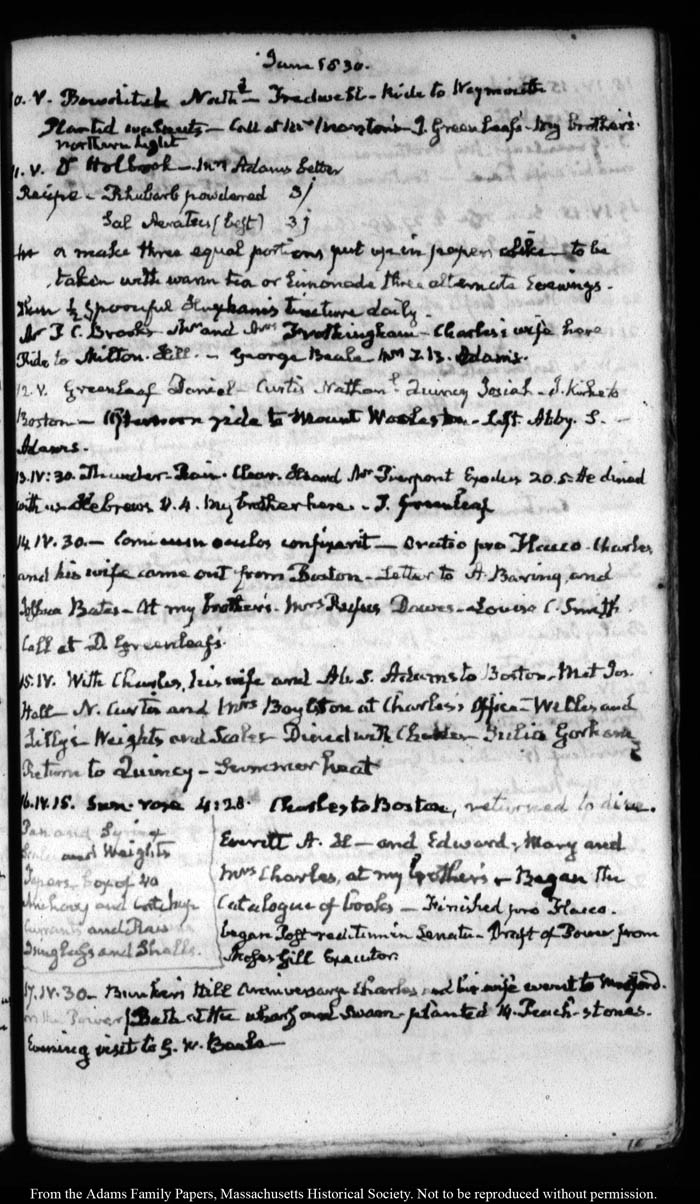 June 1830.
10. V. Bowditch Nath<sup>l</sup> – Treadwell – Ride to Weymouth
Planted walnuts – Call at Mrs Marston's – J. Greenleaf's – My brother's
northern light
11. V. Dr Holbrook – Mrs Adams better
Recipe – Rhubarb powdered 3j
Sal Aeratus (best) 3j
make three equal portions put up in paper – to be
taken with warm tea or Limonade three alternate Evenings.
Then ½ Spoonful Huxham's tincture daily.
Mr P. C. Brooks Mr and Mrs Frothingham – Charles's wife here
Ride to Milton Hill. – George Beale Mrs T. B. Adams.
12. V. Greenleaf Daniel – Curtis Nathan<sup>l</sup> – Quincy Josiah – J. Kirk to
Boston – Afternoon ride to Mount Wollaston – Left Abby. S. –
Adams.
13. IV: 30. Thunder – Rain. Clear. Heard Mr Pierpont Exodus 20. 5 – He dined
with us – Hebrews . 4. My brother here – J. Greenleaf
14. IV. 30. – Cornicum oculos confixerit – Oratio pro Flacco. Charles
and his wife came out from Boston – Letter to A. Baring, and
Joshua Bates – At my brother's. Mrs Rufus Dawes – Louisa C. Smith
Call at D. Greenleaf's.
15. IV. With Charles, his wife and Ab. S. Adams to Boston. Met Jos.
Hall – N. Curtis and Mrs Boylston at Charles's Office – Welles and
– Weights and Scales – Dined with Charles – Julia Gorham
Return to Quincy – Summer heat
16. IV. 15. Sun. rose 4:28. Charles to Boston, returned to dine.
Pan and Syring
Scales and Weights
Tapers – box of 40
Anchovy and Catchup
Currants and
and Shells.
Everett A. H – and Edward, Mary and
Mrs Charles, at my brother's – Began the
Catalogue of books – Finished pro Flacco.
began Post reditum in Senatu – Draft of Power from
Moses Gill Executor.
17. IV. 30 – Bunker's Hill Anniversary Charles and his wife went to Medford.
Power Bath at the wharf and swam – planted 14 Peach-stones.
Evening visit to G. W. Beale –
16
From the Adams Family Papers, Massachusetts Historical Society. Not to be reproduced without permission.